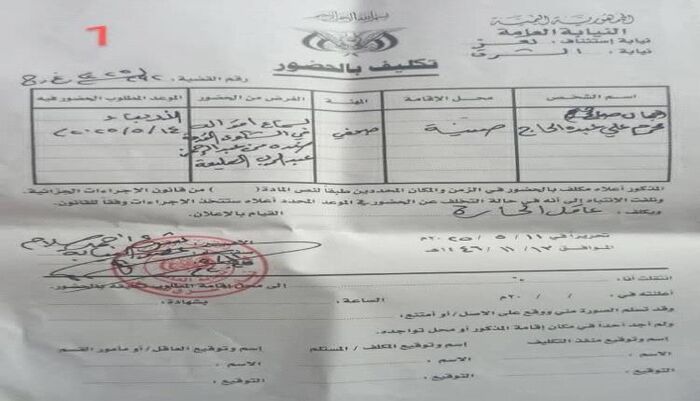 1
بسم الله الرحمن الرحيم
الجمهورية اليمنية
النيابة العامة
نيابة إستئناف : تعز
نيابة : الشرق
تكليف بالحضور
رقم القضية :
إسم الشخص
محل الإقامة
المهنة
الغرض من الحضور
الموعد المطلوب الحضور فيه
محرم علي عبده الحاج
صينة
صحفي
لسماع
في الشكوى
من عبدالرحمن
الأربعاء
٢٠٢٥/٥/١٤
المذكور أعلاه مكلف بالحضور في الزمن والمكان المحددين طبقاً لنص المادة ( ) من قانون الإجراءات الجزائية.
ونلفت الانتباه إلى أنه في حالة التخلف عن الحضور في الموعد المحدد أعلاه ستتخذ الإجراءات وفقاً للقانون.
ويكلف : عاقل الحارة القيام بالاعلان.
تحريراً في ١١ / ٥ / ٢٠٢٥م
الموافق ١٣ / ١١ / ١٤٤٦هـ
انتقلت أنا : إلى محل إقامة المطلوب تكليفه بالحضور.
أعلنته في : / / ٢٠م الساعة : بشهادة :
وقد تسلم الصورة مني ووقع على الاصل / أو أمتنع .
ولم أجد أحداً في مكان إقامة المذكور أو محل تواجده.
إسم وتوقيع منفذ التكليف
إسم وتوقيع المكلف / المستلم
إسم وتوقيع العاقل / أو مأمور القسم
الاسم :
الاسم :
الاسم :
التوقيع :
التوقيع :
التوقيع :